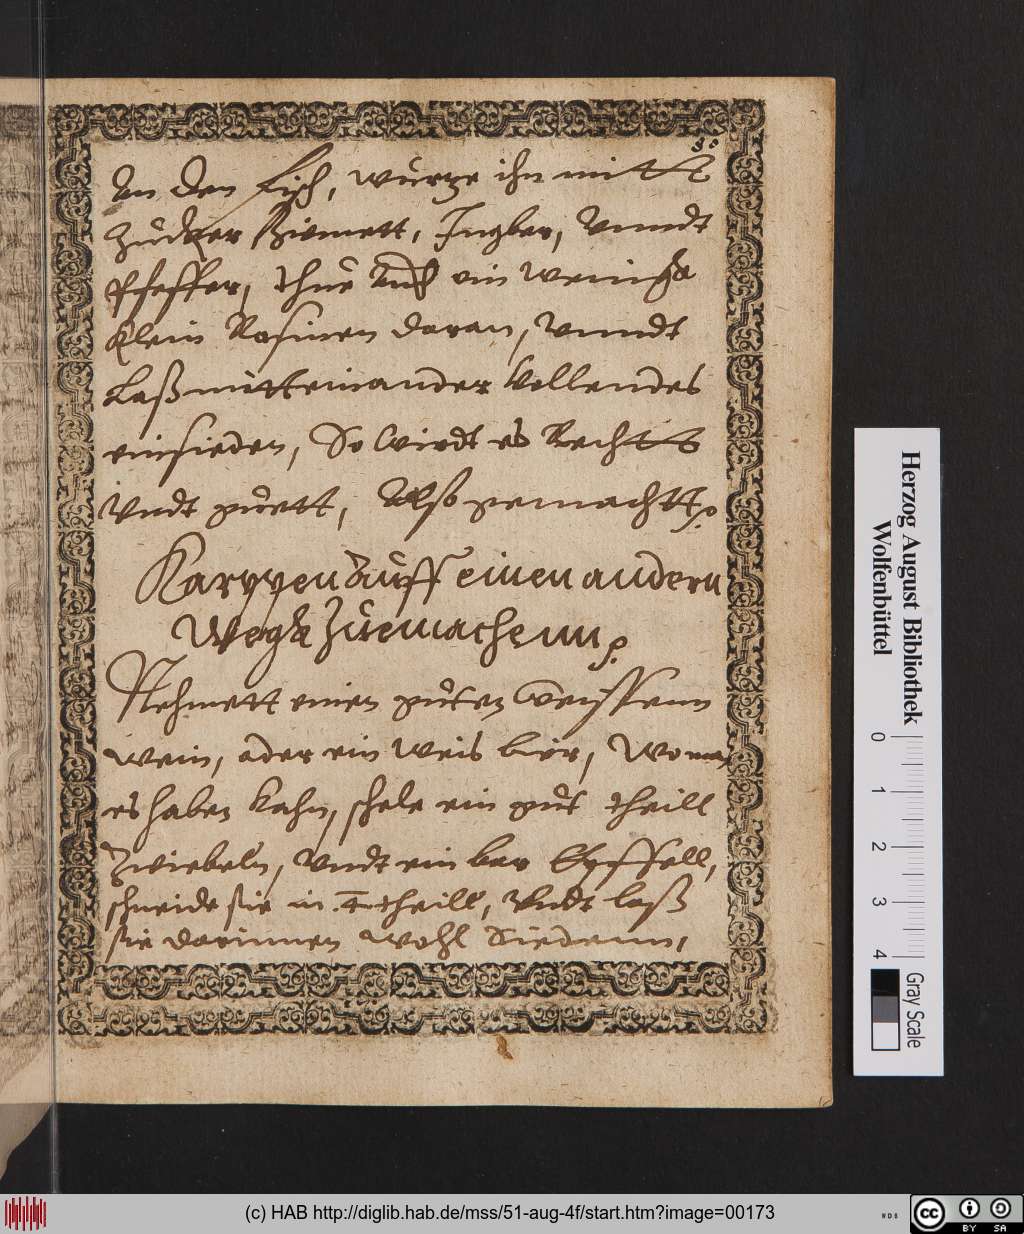 80
An den Fisch, würze ihn mitt
Zücker Zimmett, Ingber, Vnndt
Pfeffer, thue Auch ein wenigk
klein Rosinen daran, Vnndt
Laß mitt einander Vollendes
einsieden, So wirdt es Recht
Vndt guett, Also gemachtt.
Karppen Auff einen andern
Wegk Zuemachenn.
Nehmett einen guten Weissenn
Wein, oder ein Weis bier, Wo man
es haben kahn, schele ein gut theill
Zwiebeln, Vndt ein bar Epffell,
schneide sie in 4 theill, Vndt laß
sie darinnen wohl Siedenn,
Herzog August Bibliothek
Wolfenbüttel
0 1 2 3 4
Gray Scale
(c) HAB http://diglib.hab.de/mss/51-aug-4f/start.htm?image=00173
WDB
cc BY SA